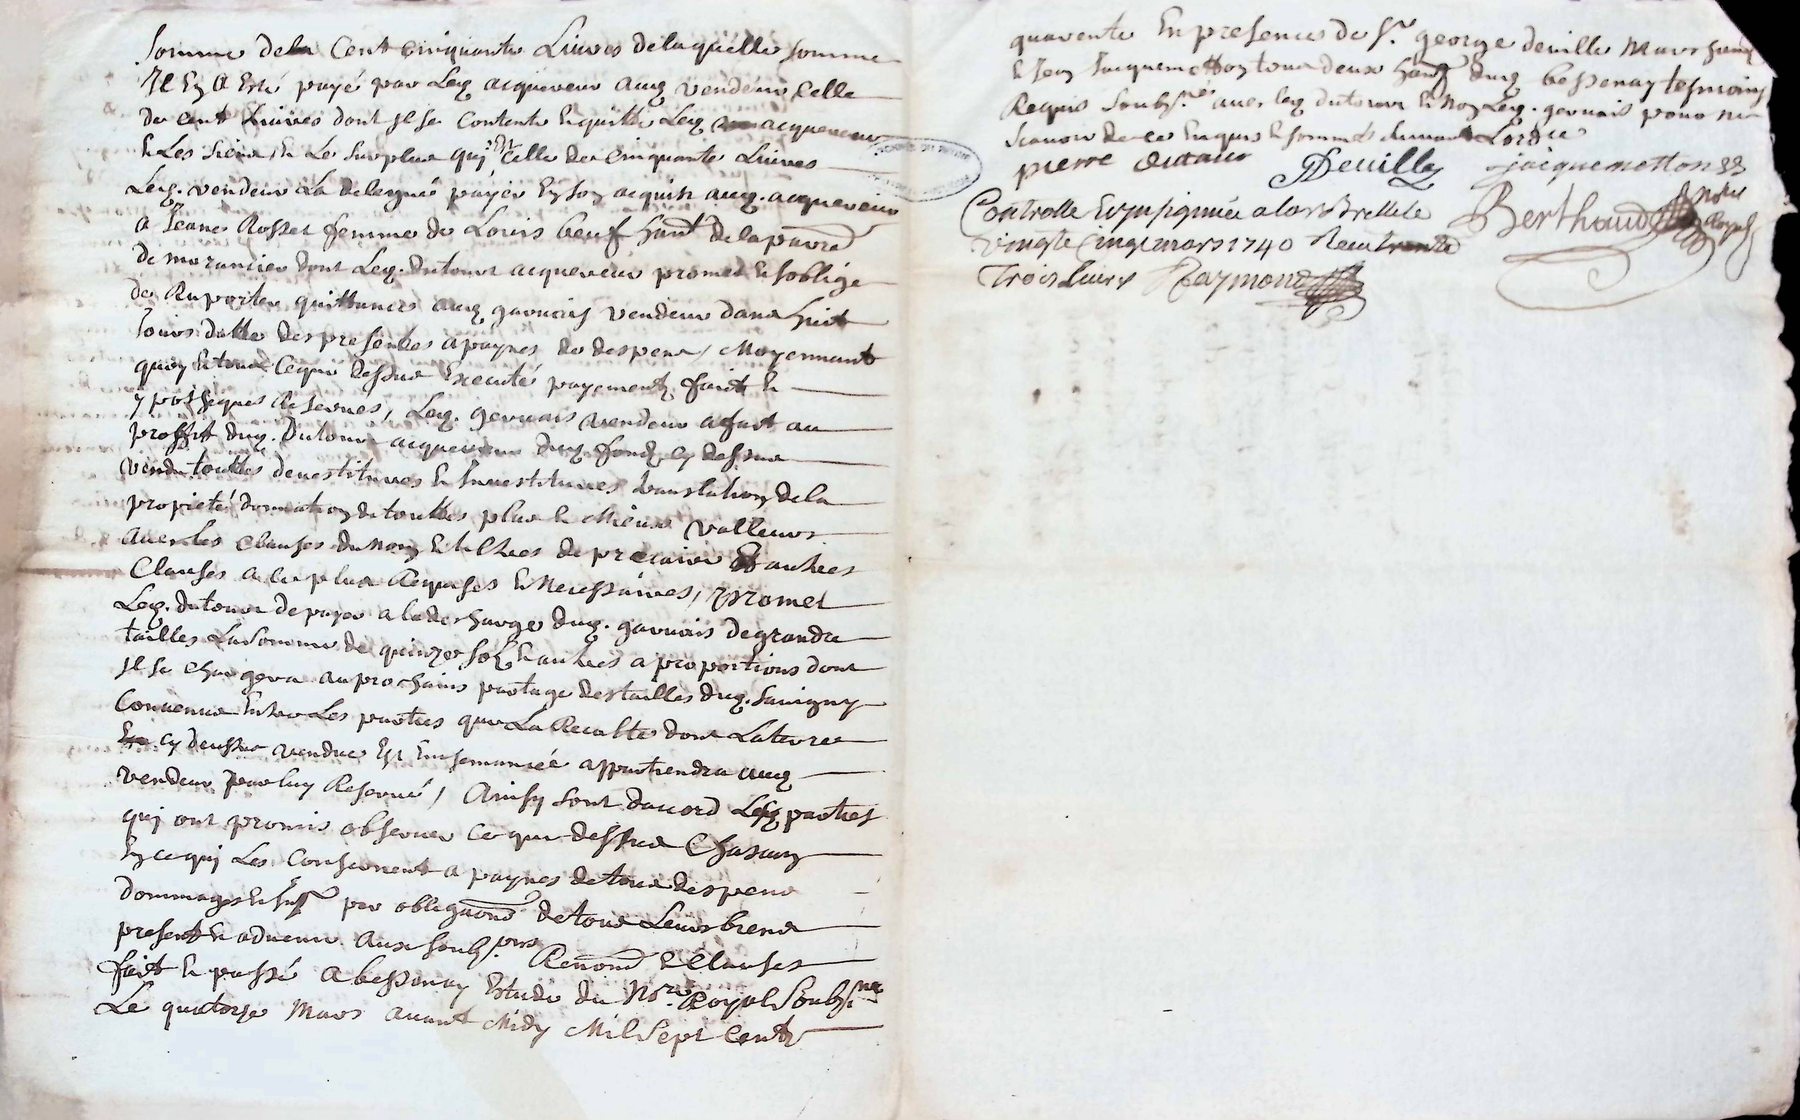 somme de la Cent cinquante Livres delaquelle somme
Il En a Esté payé par Leq acquereur auq vendeur Celle
de cent Livres dont Il se Contente En quitte Leq acquereur
& Les siens, & Le surplus quj Est Celle de Cinquante Livres
Leq. vendeur La delegué payer En son acquit auq. acquereur
a Jeane Rosset femme de Louis beuf hant de la parr.
de morancier dont Leq. Dutour acquereur promet & soblige
de Raporter quittances auq gervais vendeur dans huit
Jours datte des presentes a paynes de despens, Moyennant
quoy & tout Ceque dessus Executé payement fait &
yposheques Reservés, Leq. gervais vendeur a fait au
proffit duq. Dutour acquereur duq. fond cy dessus
vendu touttes devestitures & Jnvestitures translation de la
proprieté donnation de touttes plus & Mieux valleurs
avec Les Clauses du Nom & tiltres de precaire Et autres
Clauses a ce plus Requises & Necessaires, Promet
Leq. Dutour de payer a la descharge duq. gervais de grandes
tailles La somme de quinze sols & autres a proportions dont
Il se Chargera au prochains partage des tailles duq. Savigny
Convenu Entre Les parties que La Recolte dont La terre
cy dessus vendue Est Ensemancée appartiendra auq
vendeur par luy Reservé, Ainsy sont daccord Lesq parties
quj ont promis observer ce que dessus Chasung
En ce quj Les Consernent a paynes de tous despens
dommages & Int par obligaons de tous Leurs biens
present & advenir aux soubs. pnes Renont & Clauses
fait & passé a bessenay Estude du Nore Royal Soubsné
Le quatorze Mars avant Midy Mil Sept Cents
quarente En presences de Sr george deville Marchand
& Jean Jacquemetton tous deux hants duq bessenay tesmoins
Requis soubs.nés avec leq dutour & Non Leq. gervais pour ne
scavoir de ce Enquis & sommés suivant Lordre
pierre dutour Deville jacquemetton
Controllé Et Jnsinuée a larbrelle le Berthaud Notre Royal
vingte Cinqe mars 1740 Receu trente
Trois livres Raymond